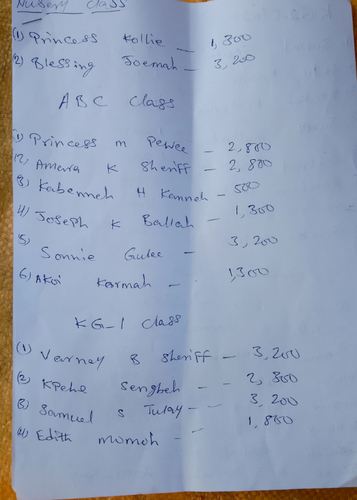 Nusery Class
(1) Princess Kollie — 1,300
2) Blessing Joemah — 3,200
ABC Class
1) Princess m Pewee — 2,800
(2) Amara K Sheriff — 2,800
(3) Kabenneh H Kanneh — 500
4) Joseph K Ballah — 1,300
5) Sonnie Gulee — 3,200
6) Akoi Kormah — 1,300
KG-1 Class
(1) Varney B Sheriff — 3,200
(2) Kpehe Sengbeh — 2,300
(3) Samuel S Tulay — 3,200
(4) Edith momoh — 1,800